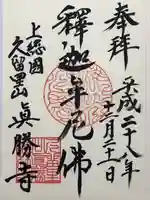 奉拝
平成二十八年
十二月二十一日
釋迦牟尼佛
上総國
久留里山
真勝寺